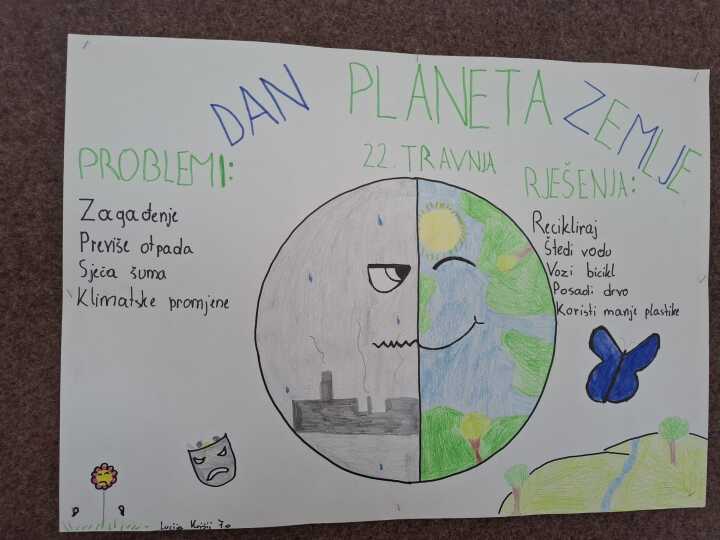 DAN PLANETA ZEMLJE
22. TRAVNJA
PROBLEMI:
Zagađenje
Previše otpada
Sječa šuma
Klimatske promjene
RJEŠENJA:
Recikliraj
Štedi vodu
Vozi bicikl
Posadi drvo
Koristi manje plastike
Lucija